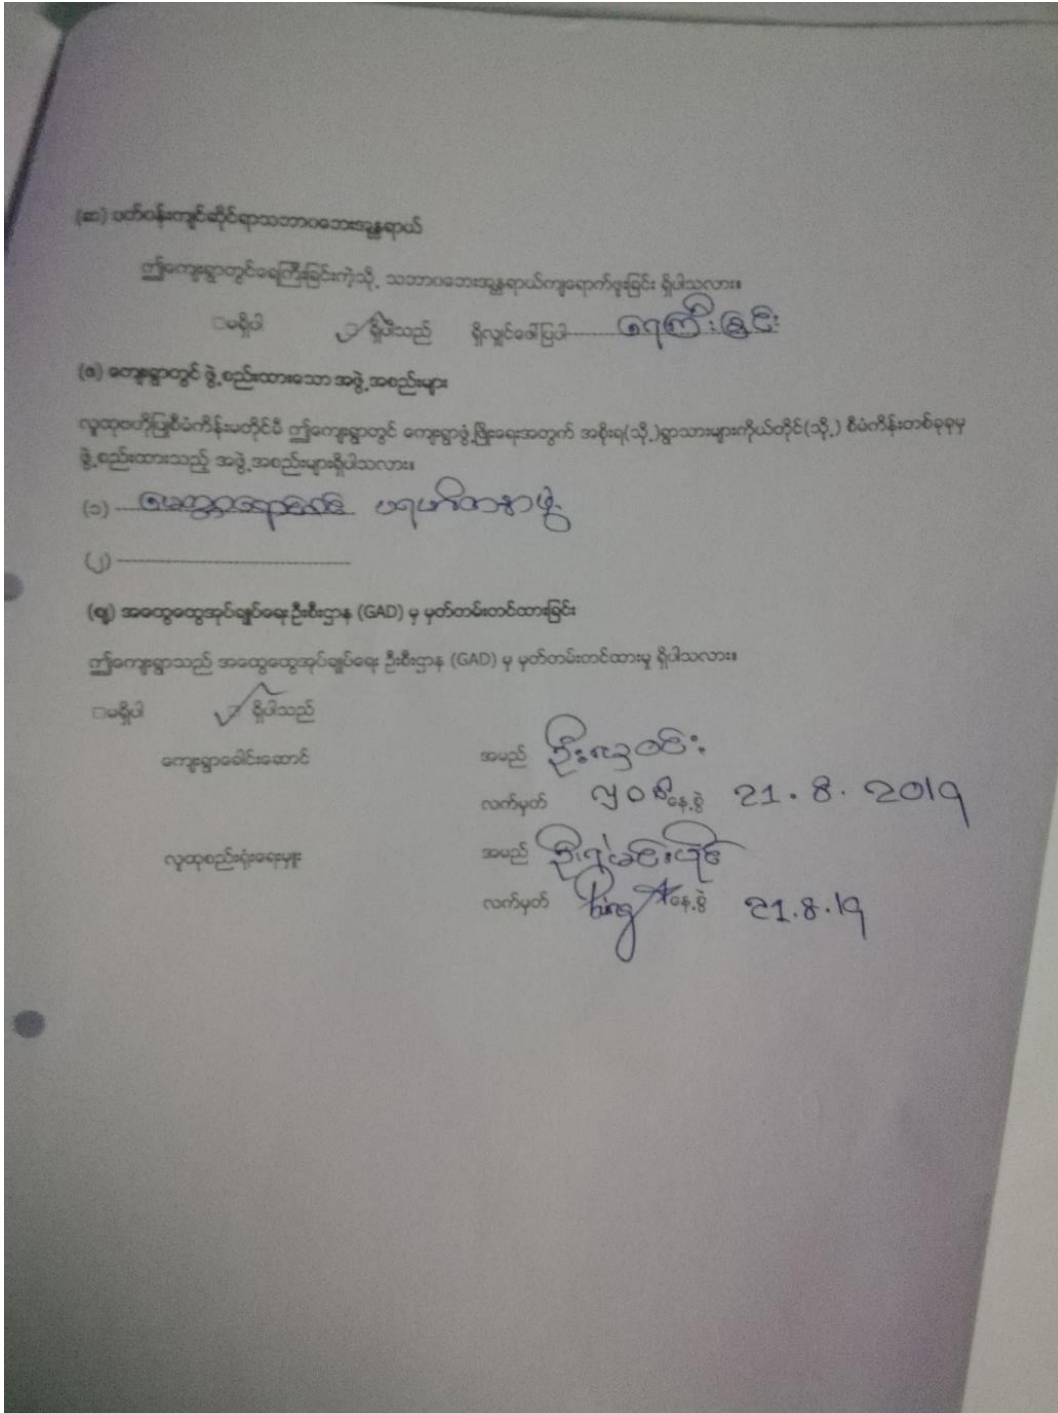 (ဆ) ပတ်ဝန်းကျင်ဆိုင်ရာသဘာဝဘေးအန္တရာယ်
ဤကျေးရွာတွင်ရေကြီးခြင်းကဲ့သို့ သဘာဝဘေးအန္တရာယ်ကျရောက်ဖူးခြင်း ရှိပါသလား။
□မရှိပါ □ ရှိပါသည် ရှိလျှင်ဖေါ်ပြပါ------- ရေကြီးခြင်း
(ဇ) ကျေးရွာတွင် ဖွဲ့စည်းထားသော အဖွဲ့အစည်းများ
လူထုဗဟိုပြုစီမံကိန်းမတိုင်မီ ဤကျေးရွာတွင် ကျေးရွာဖွံ့ဖြိုးရေးအတွက် အစိုးရ(သို့)ရွာသားများကိုယ်တိုင်(သို့) စီမံကိန်းတစ်ခုခုမှ
ဖွဲ့စည်းထားသည့် အဖွဲ့အစည်းများရှိပါသလား။
(၁) မေတ္တာရောင်ဝင် ပရဟိတနာဖွဲ့
(၂) --------------------------------
(ဈ) အထွေထွေအုပ်ချုပ်ရေးဦးစီးဌာန (GAD) မှ မှတ်တမ်းတင်ထားခြင်း
ဤကျေးရွာသည် အထွေထွေအုပ်ချုပ်ရေး ဦးစီးဌာန (GAD) မှ မှတ်တမ်းတင်ထားမှု ရှိပါသလား။
□မရှိပါ □ ရှိပါသည်
ကျေးရွာခေါင်းဆောင် အမည်
လက်မှတ် နေ့စွဲ 21.8.2019
လူထုစည်းရုံးရေးမှူး အမည်
လက်မှတ် နေ့စွဲ 21.8.19